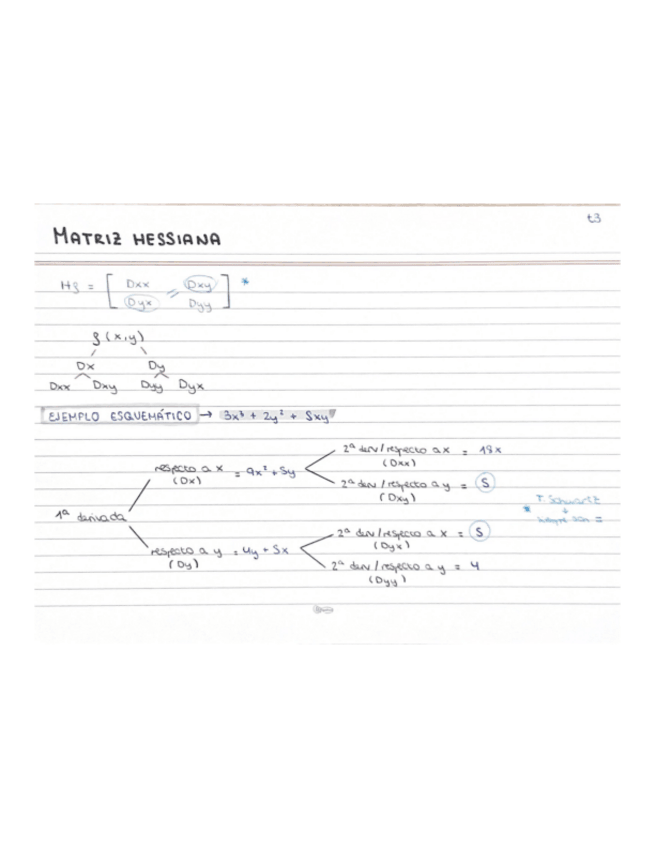 t3
MATRIZ HESSIANA
Hf = [ Dxx = Dxy ] *
[ Dyx Dyy ]
f(x,y)
Dx Dy
Dxx Dxy Dyy Dyx
EJEMPLO ESQUEMÁTICO → 3x³ + 2y² + 5xy
1ª derivada
respecto a x = 9x² + 5y
(Dx)
2ª derv/respecto a x = 18x
(Dxx)
2ª derv/respecto a y = 5
(Dxy)
respecto a y = 4y + 5x
(Dy)
2ª derv/respecto a x = 5
(Dyx)
2ª derv/respecto a y = 4
(Dyy)
T. Schwartz
* ↓
siempre son =